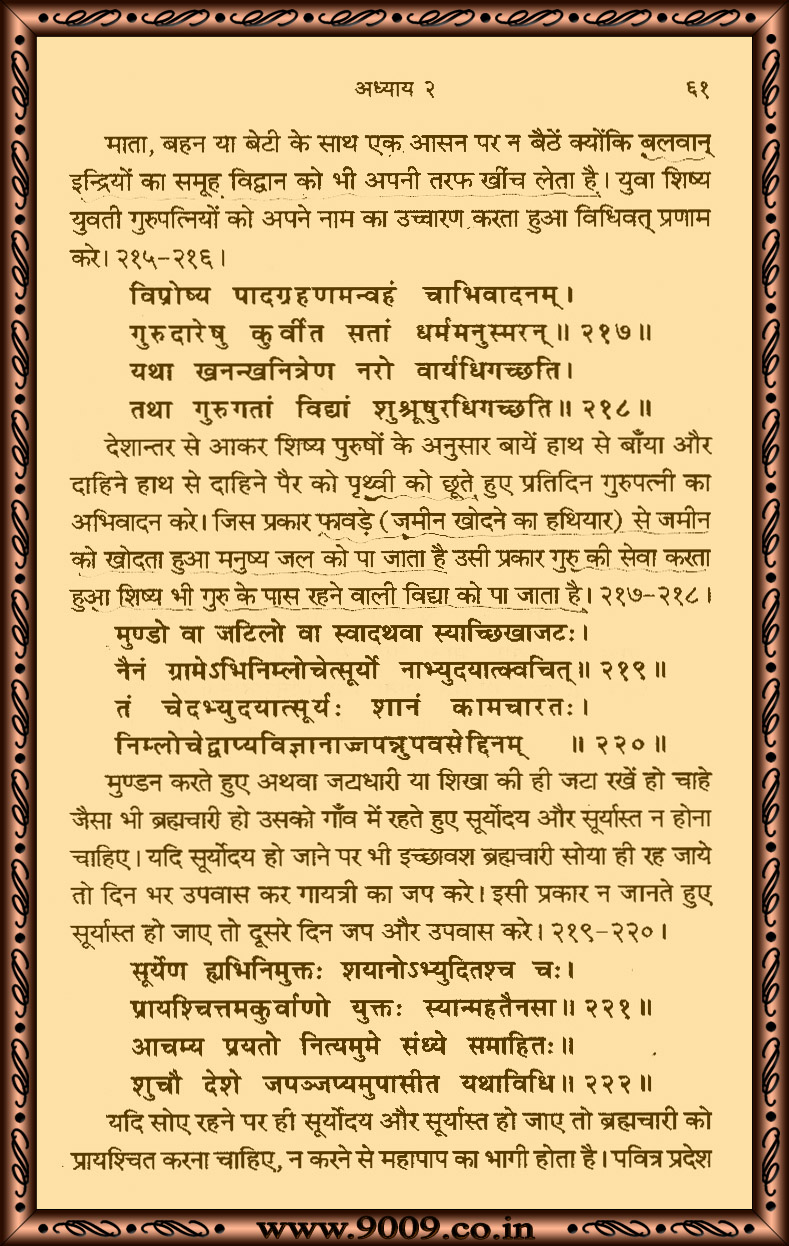 अध्याय २ ६१
माता, बहन या बेटी के साथ एक आसन पर न बैठें क्योंकि बलवान्
इन्द्रियों का समूह विद्वान को भी अपनी तरफ खींच लेता है। युवा शिष्य
युवती गुरुपत्नियों को अपने नाम का उच्चारण करता हुआ विधिवत् प्रणाम
करे। २१५-२१६।
विप्रोष्य पादग्रहणमन्वहं चाभिवादनम्।
गुरुदारेषु कुर्वीत सतां धर्ममनुस्मरन्॥ २१७॥
यथा खनन्खनित्रेण नरो वार्यधिगच्छति।
तथा गुरुगतां विद्यां शुश्रूषुरधिगच्छति॥ २१८॥
देशान्तर से आकर शिष्य पुरुषों के अनुसार बायें हाथ से बाँया और
दाहिने हाथ से दाहिने पैर को पृथ्वी को छूते हुए प्रतिदिन गुरुपत्नी का
अभिवादन करे। जिस प्रकार फावड़े (जमीन खोदने का हथियार) से जमीन
को खोदता हुआ मनुष्य जल को पा जाता है उसी प्रकार गुरु की सेवा करता
हुआ शिष्य भी गुरु के पास रहने वाली विद्या को पा जाता है। २१७-२१८।
मुण्डो वा जटिलो वा स्वादथवा स्याच्छिखाजटः।
नैनं ग्रामेऽभिनिम्लोचेत्सूर्यो नाभ्युदयात्क्वचित्॥ २१९॥
तं चेदभ्युदयात्सूर्यः शानं कामचारतः।
निम्लोचेद्वाप्यविज्ञानाज्जपन्नुपवसेद्दिनम् ॥ २२०॥
मुण्डन करते हुए अथवा जटाधारी या शिखा की ही जटा रखें हो चाहे
जैसा भी ब्रह्मचारी हो उसको गाँव में रहते हुए सूर्योदय और सूर्यास्त न होना
चाहिए। यदि सूर्योदय हो जाने पर भी इच्छावश ब्रह्मचारी सोया ही रह जाये
तो दिन भर उपवास कर गायत्री का जप करे। इसी प्रकार न जानते हुए
सूर्यास्त हो जाए तो दूसरे दिन जप और उपवास करे। २१९-२२०।
सूर्येण ह्यभिनिमुक्तः शयानोऽभ्युदितश्च चः।
प्रायश्चित्तमकुर्वाणो युक्तः स्यान्महतैनसा॥ २२१॥
आचम्य प्रयतो नित्यमुमे संध्ये समाहितः॥
शुचौ देशे जपञ्जप्यमुपासीत यथाविधि॥ २२२॥
यदि सोए रहने पर ही सूर्योदय और सूर्यास्त हो जाए तो ब्रह्मचारी को
प्रायश्चित करना चाहिए, न करने से महापाप का भागी होता है। पवित्र प्रदेश
www.9009.co.in